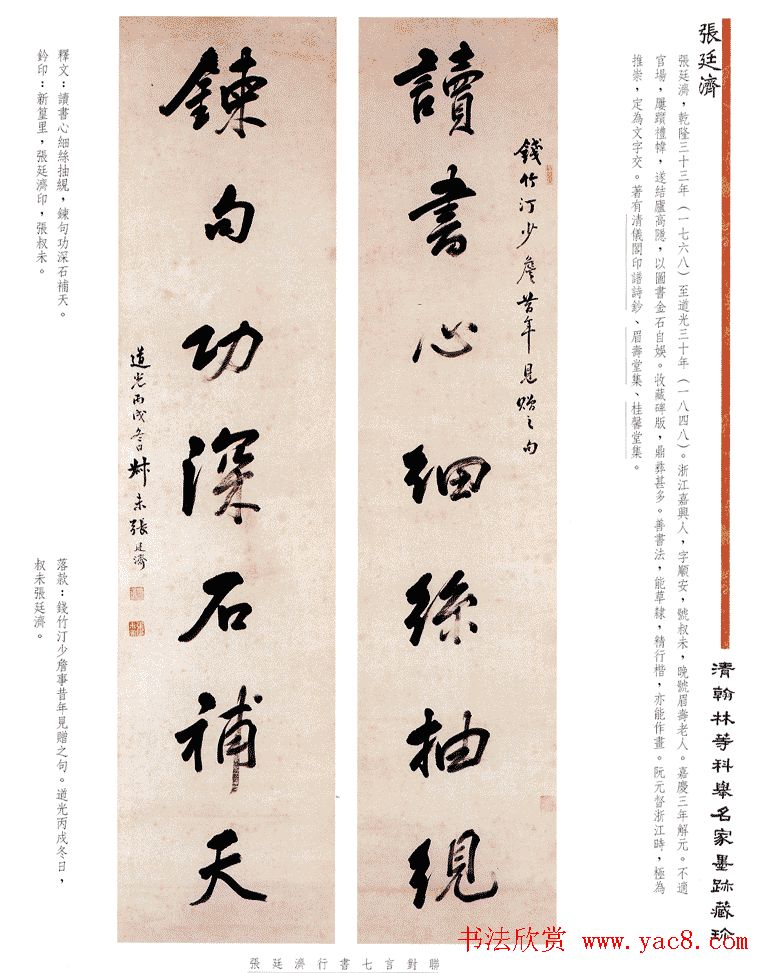 張廷濟
張廷濟，乾隆三十三年（一七六八）至道光三十年（一八四八）。浙江嘉興人，字順安，號叔未，晚號眉壽老人。嘉慶三年解元。不適
官場，屢躓禮幃，遂結廬高隱，以圖書金石自娛。收藏碑版，鼎彝甚多。善書法，能草隸，精行楷，亦能作畫。阮元督浙江時，極為
推崇，定為文字交。著有清儀閣印譜詩鈔、眉壽堂集、桂馨堂集。
清翰林等科舉名家墨跡藏珍
錢竹汀少詹昔年見贈之句
讀書心細絲抽緄
鍊句功深石補天
道光丙戌冬日叔未張廷濟
釋文：讀書心細絲抽緄，鍊句功深石補天。
鈐印：新篁里，張廷濟印，張叔未。
落款：錢竹汀少詹事昔年見贈之句。道光丙戌冬日，
叔未張廷濟。
張廷濟行書七言對聯
书法欣赏 www.yac8.com